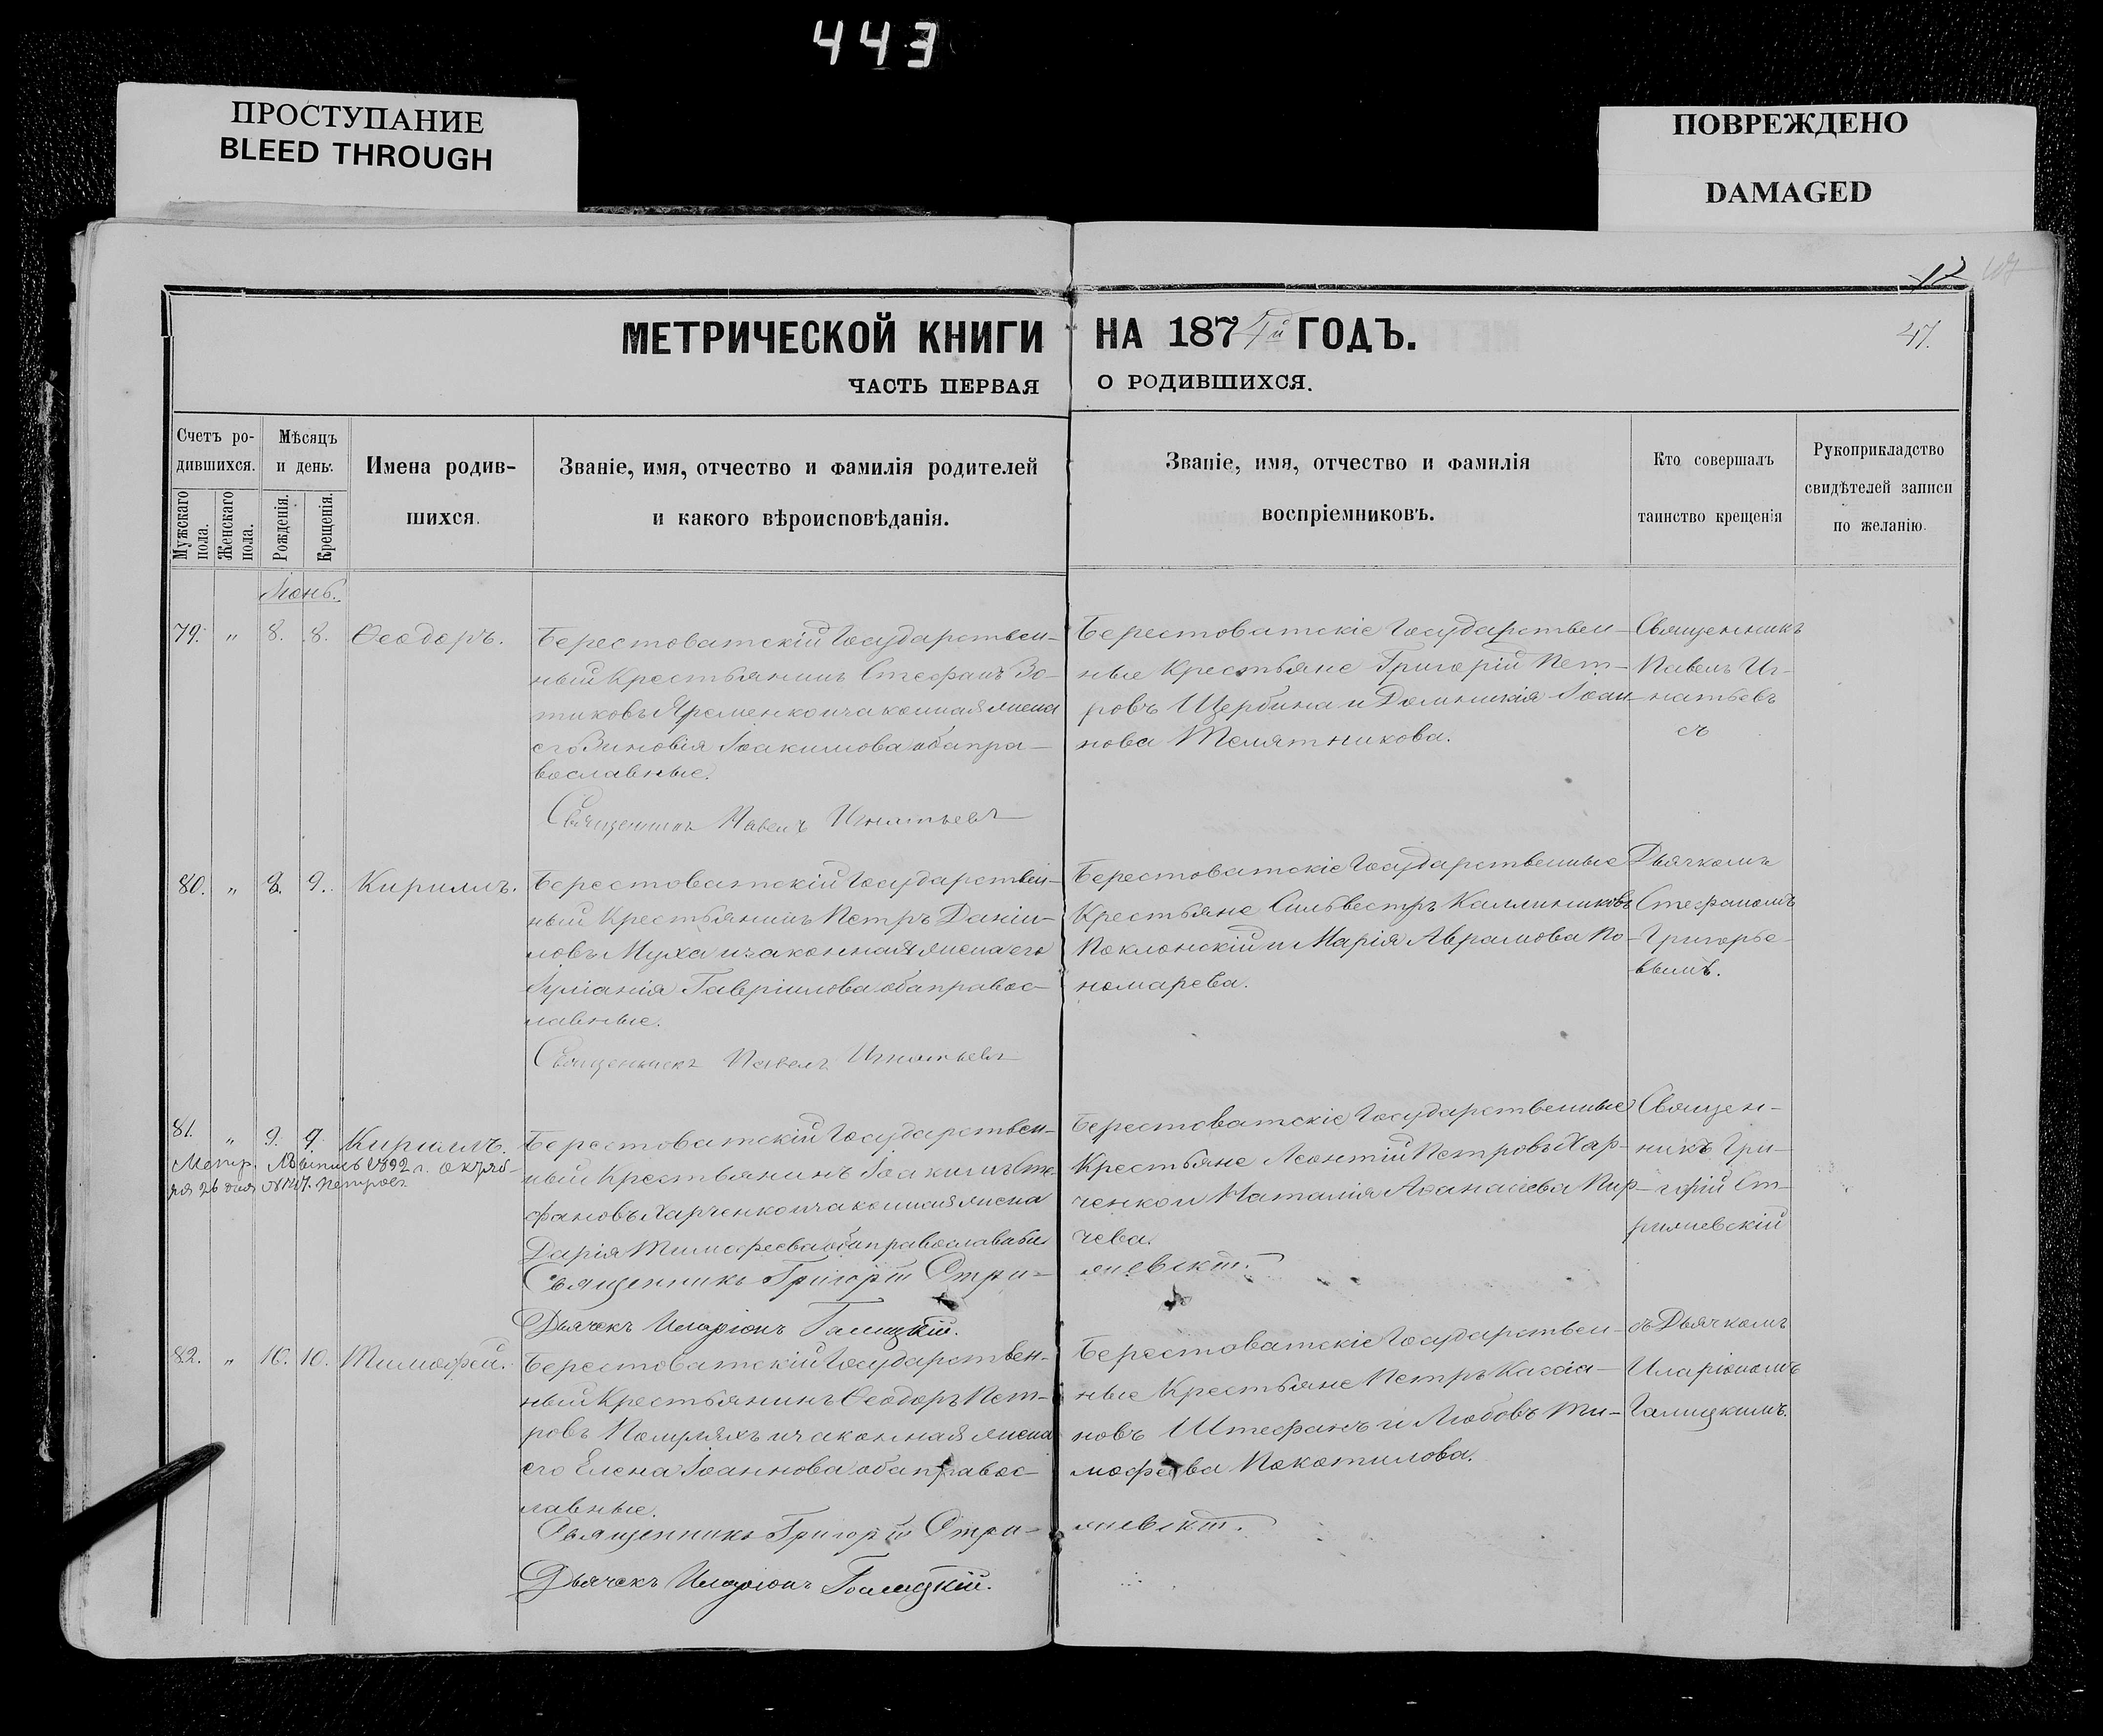 443
ПРОСТУПАНИЕ
BLEED THROUGH
ПОВРЕЖДЕНО
DAMAGED
47.
МЕТРИЧЕСКОЙ КНИГИ НА 1874й ГОДЪ.
ЧАСТЬ ПЕРВАЯ О РОДИВШИХСЯ.
Счетъ ро-
дившихся.
Мужскаго
пола.
Женскаго
пола.
Мѣсяцъ
и день.
Рожденія.
Крещенія.
Имена родив-
шихся.
Званіе, имя, отчество и фамилія родителей
и какого вѣроисповѣданія.
Званіе, имя, отчество и фамилія
воспріемниковъ.
Кто совершалъ
таинство крещенія
Рукоприкладство
свидѣтелей записи
по желанію.
Іюнь.
79. " 8. 8. Ѳеодоръ.
Берестоватскій Государствен-
ный Крестьянинъ Стефанъ Зо-
тиковъ Яременко и законная жена
его Зиновія Іоакимова оба пра-
вославные.
Священникъ Павелъ Игнатьевъ
Берестоватскіе Государствен-
ные Крестьяне Григорій Пет-
ровъ Щербина и Домникія Іоан-
нова Телятникова.
Священникъ
Павелъ Иг-
натьевъ
съ
80. " 8. 9. Кириллъ.
Берестоватскій Государствен-
ный Крестьянинъ Петръ Даніи-
ловъ Муха и законная жена его
Іуліанія Гавріилова оба правос-
лавные.
Священникъ Павелъ Игнатьевъ
Берестоватскіе Государственные
Крестьяне Сильвестръ Каллиниковъ
Поклонскій и Марія Аврамова По-
номарева.
Дьячкомъ
Стефаномъ
Григорье-
вымъ.
81. " 9. 9. Кириллъ.
Метр. выпись 1892 г. октяб-
ря 26 дня
Берестоватскій Государствен-
ный Крестьянинъ Іоакимъ Сте-
фановъ Харченко и законная жена
Дарія Тимофеева оба православные
Священникъ Григорій Стри-
жевскій.
Дьячекъ Иларіонъ Галицкій.
Берестоватскіе Государственные
Крестьяне Леонтій Петровъ Хар-
ченко и Наталія Аѳанасіева Пир-
чева.
Священ-
никъ Гри-
горій Ст-
рижевскій
82. " 10. 10. Тимофей.
Берестоватскій Государствен-
ный Крестьянинъ Ѳеодоръ Пет-
ровъ и законная жена
его Елена Іоаннова оба правос-
лавные.
Священникъ Григорій Стри-
жевскій.
Дьячекъ Иларіонъ Галицкій.
Берестоватскіе Государствен-
ные Крестьяне Петръ Кассіа-
новъ Штефанъ и Любовь Ти-
мофеева Покотилова.
съ Дьячкомъ
Иларіономъ
Галицкимъ.